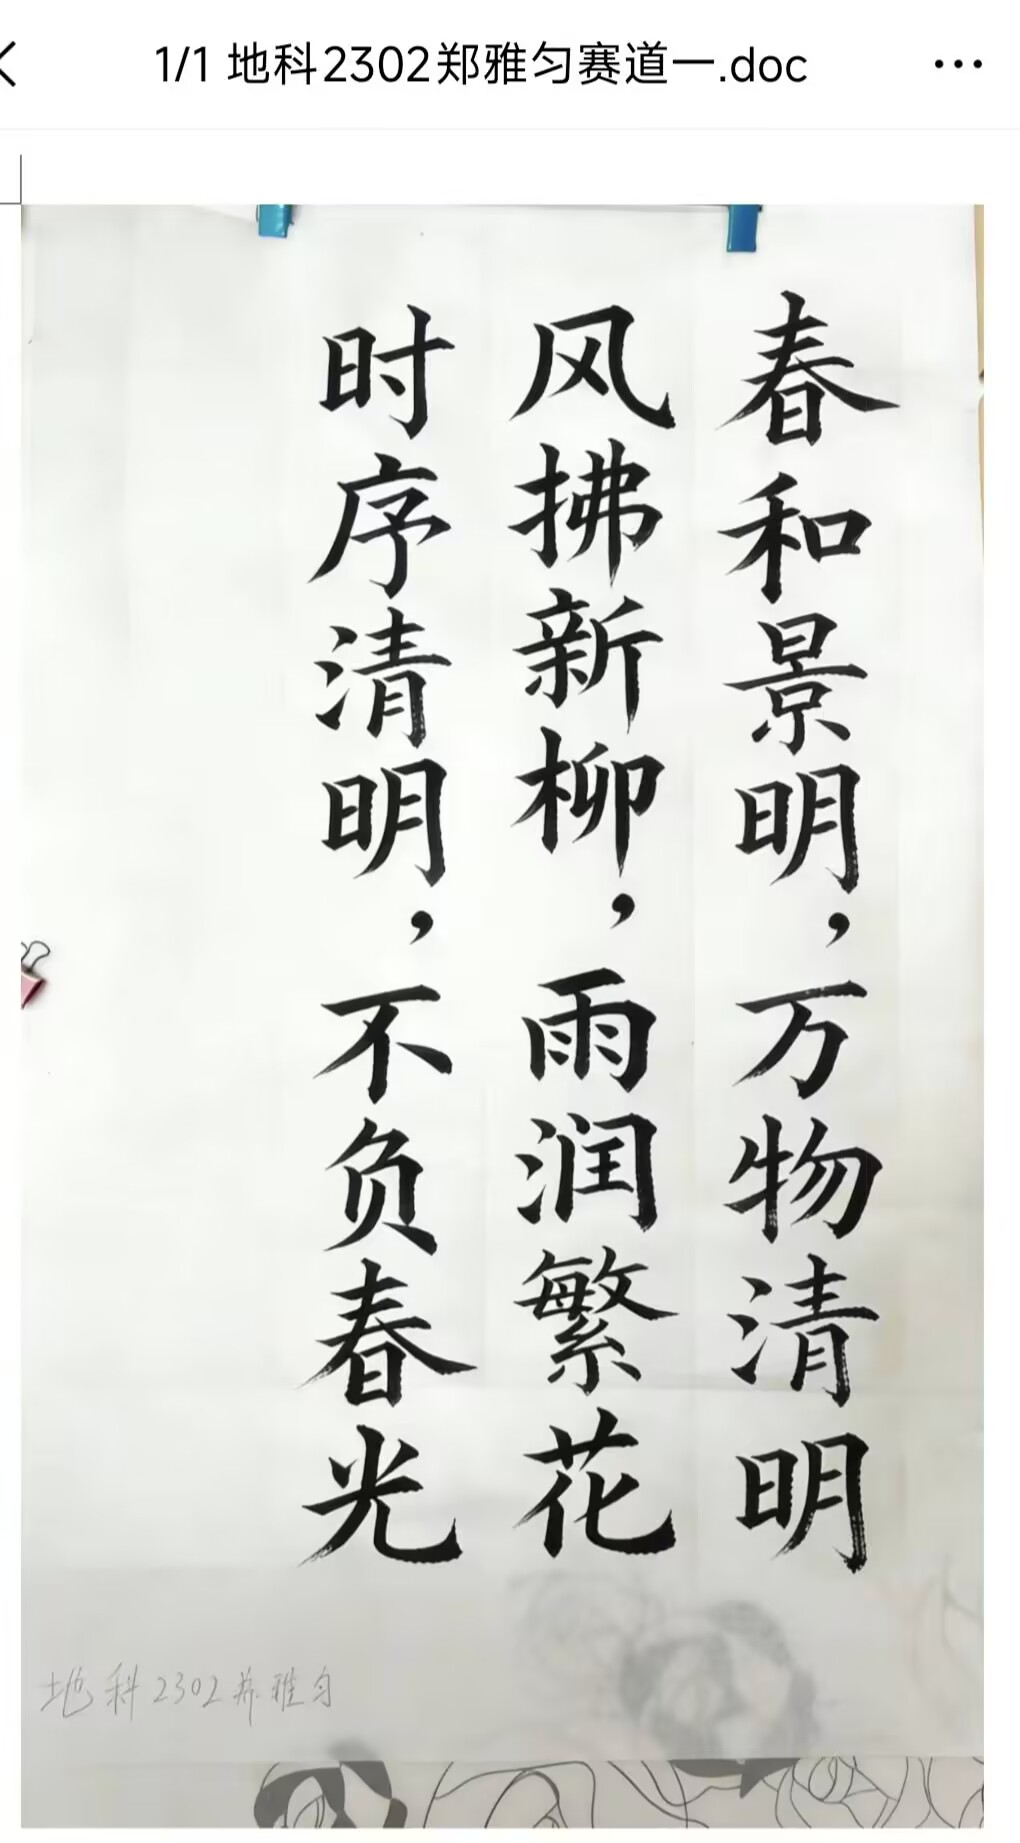 1/1 地科2302郑雅匀赛道一.doc
春和景明，万物清明
风拂新柳，雨润繁花
时序清明，不负春光
地科2302郑雅匀